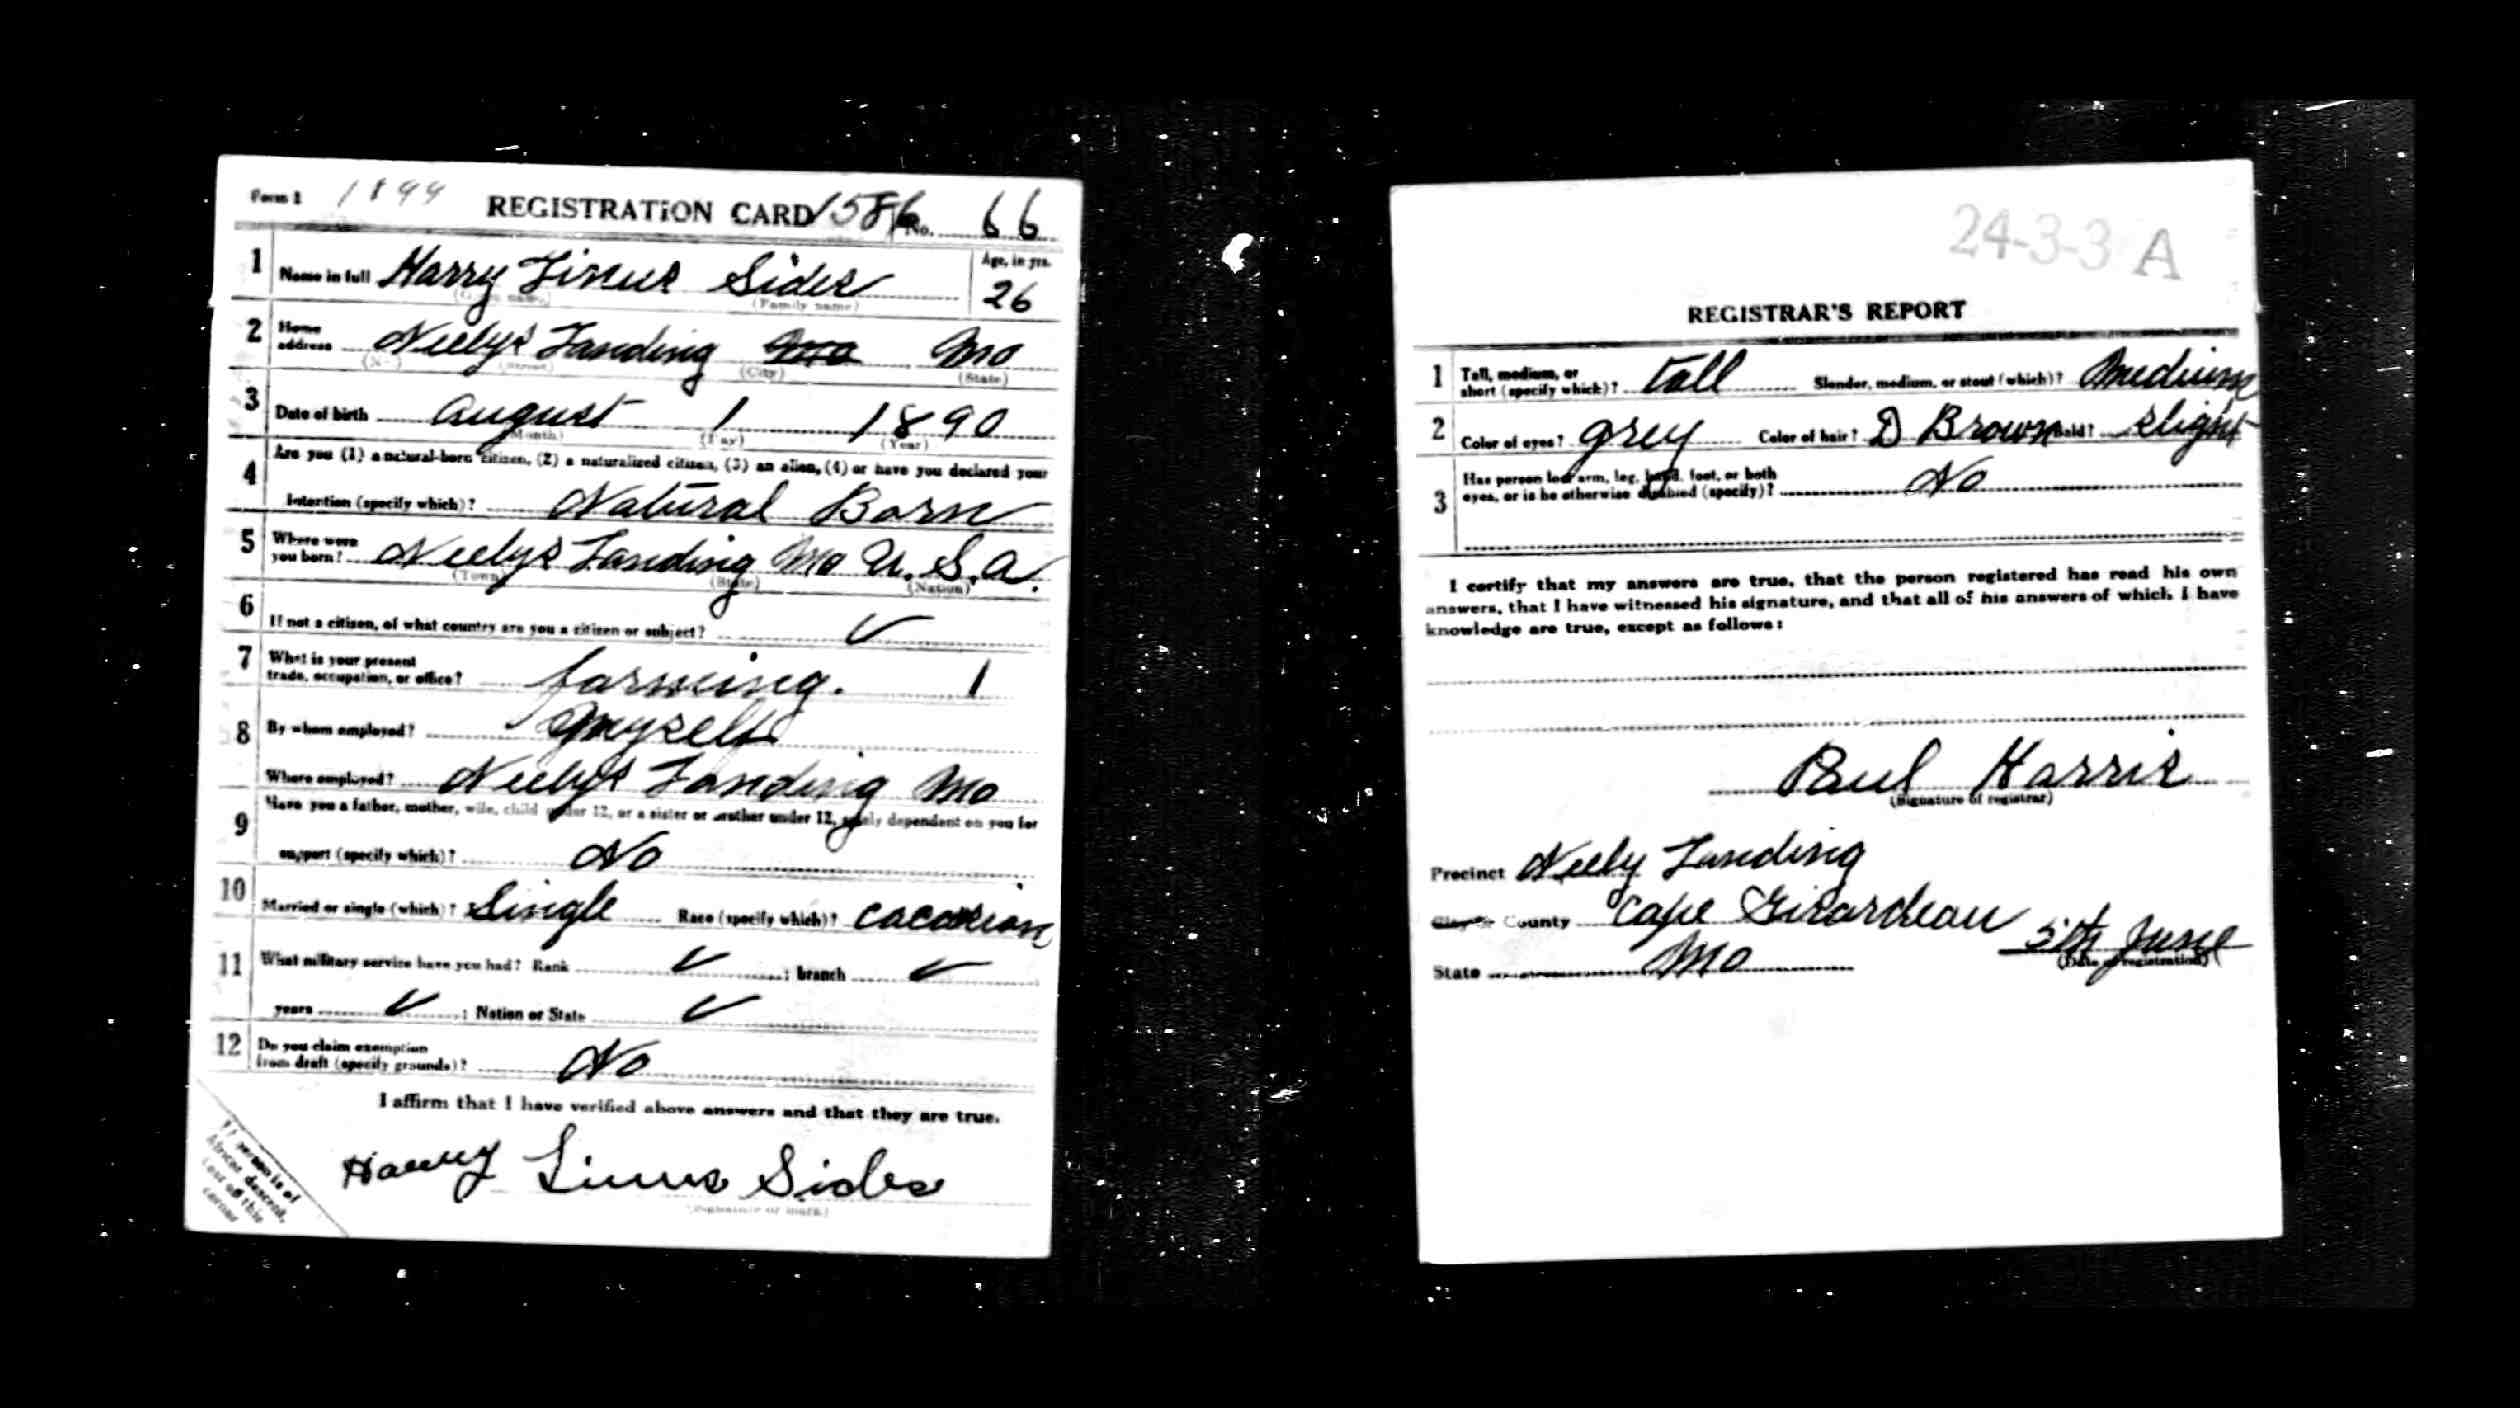 Form 1 1899 REGISTRATION CARD 1586 No. 66
1 Name in full Harry Linus Sides Age, in yrs. 26
(Given name) (Family name)
2 Home address Neelys Landing Mo Mo
(No.) (Street) (City) (State)
3 Date of birth August 1 1890
(Month) (Day) (Year)
4 Are you (1) a natural-born citizen, (2) a naturalized citizen, (3) an alien, (4) or have you declared your
intention (specify which)? Natural Born
5 Where were you born? Neelys Landing Mo U.S.A.
(Town) (State) (Nation)
6 If not a citizen, of what country are you a citizen or subject? ✓
7 What is your present trade, occupation, or office? farming. 1
8 By whom employed? Myself
Where employed? Neelys Landing Mo
9 Have you a father, mother, wife, child under 12, or a sister or brother under 12, solely dependent on you for
support (specify which)? No
10 Married or single (which)? Single Race (specify which)? Cacasian
11 What military service have you had? Rank ✓ ; branch ✓
years ✓ ; Nation or State ✓
12 Do you claim exemption from draft (specify grounds)? No
I affirm that I have verified above answers and that they are true.
Harry Linus Sides
(Signature or mark)
If person is of
African descent,
tear off this
corner
24-3-3 A
REGISTRAR'S REPORT
1 Tall, medium, or short (specify which)? Tall Slender, medium, or stout (which)? Medium
2 Color of eyes? Grey Color of hair? D Brown Bald? slight
3 Has person lost arm, leg, hand, foot, or both eyes, or is he otherwise disabled (specify)? No
I certify that my answers are true, that the person registered has read his own
answers, that I have witnessed his signature, and that all of his answers of which I have
knowledge are true, except as follows:
Paul Harris
(Signature of registrar)
Precinct Neely Landing
City or County Cape Girardeau
State Mo 5th June
(Date of registration)